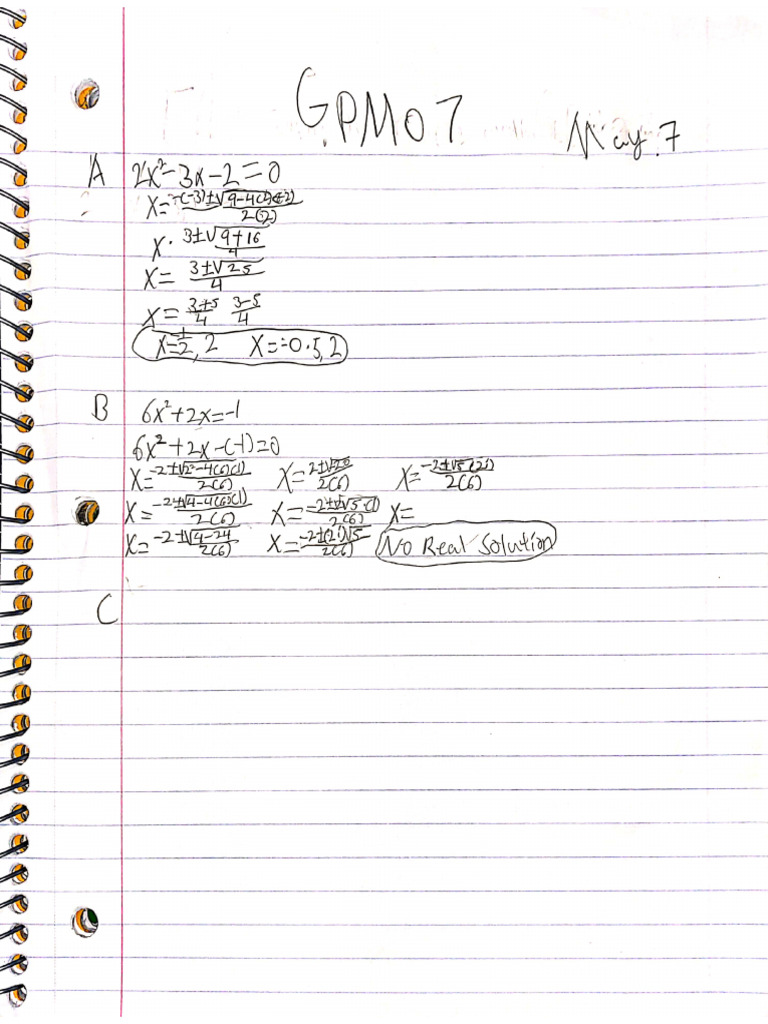 GPM07
May.7
A 2x²-3x-2=0
x=-(-3)±√9-4(2)(-2)/2(2)
x· 3±√9+16/4
x= 3±√25/4
x= 3+5/4 3-5/4
x=-1/2,2 x=-0.5,2
B 6x²+2x=-1
6x²+2x-(-1)=0
x=-2±√2²-4(6)(1)/2(6) x=2±√-20/2(6) x=-2±√5(2i)/2(6)
x=-2±√4-4(6)(1)/2(6) x=-2±2√5(-1)/2(6) x=
x=-2±√4-24/2(6) x=-2±(2i)√5/2(6) No Real Solution
C